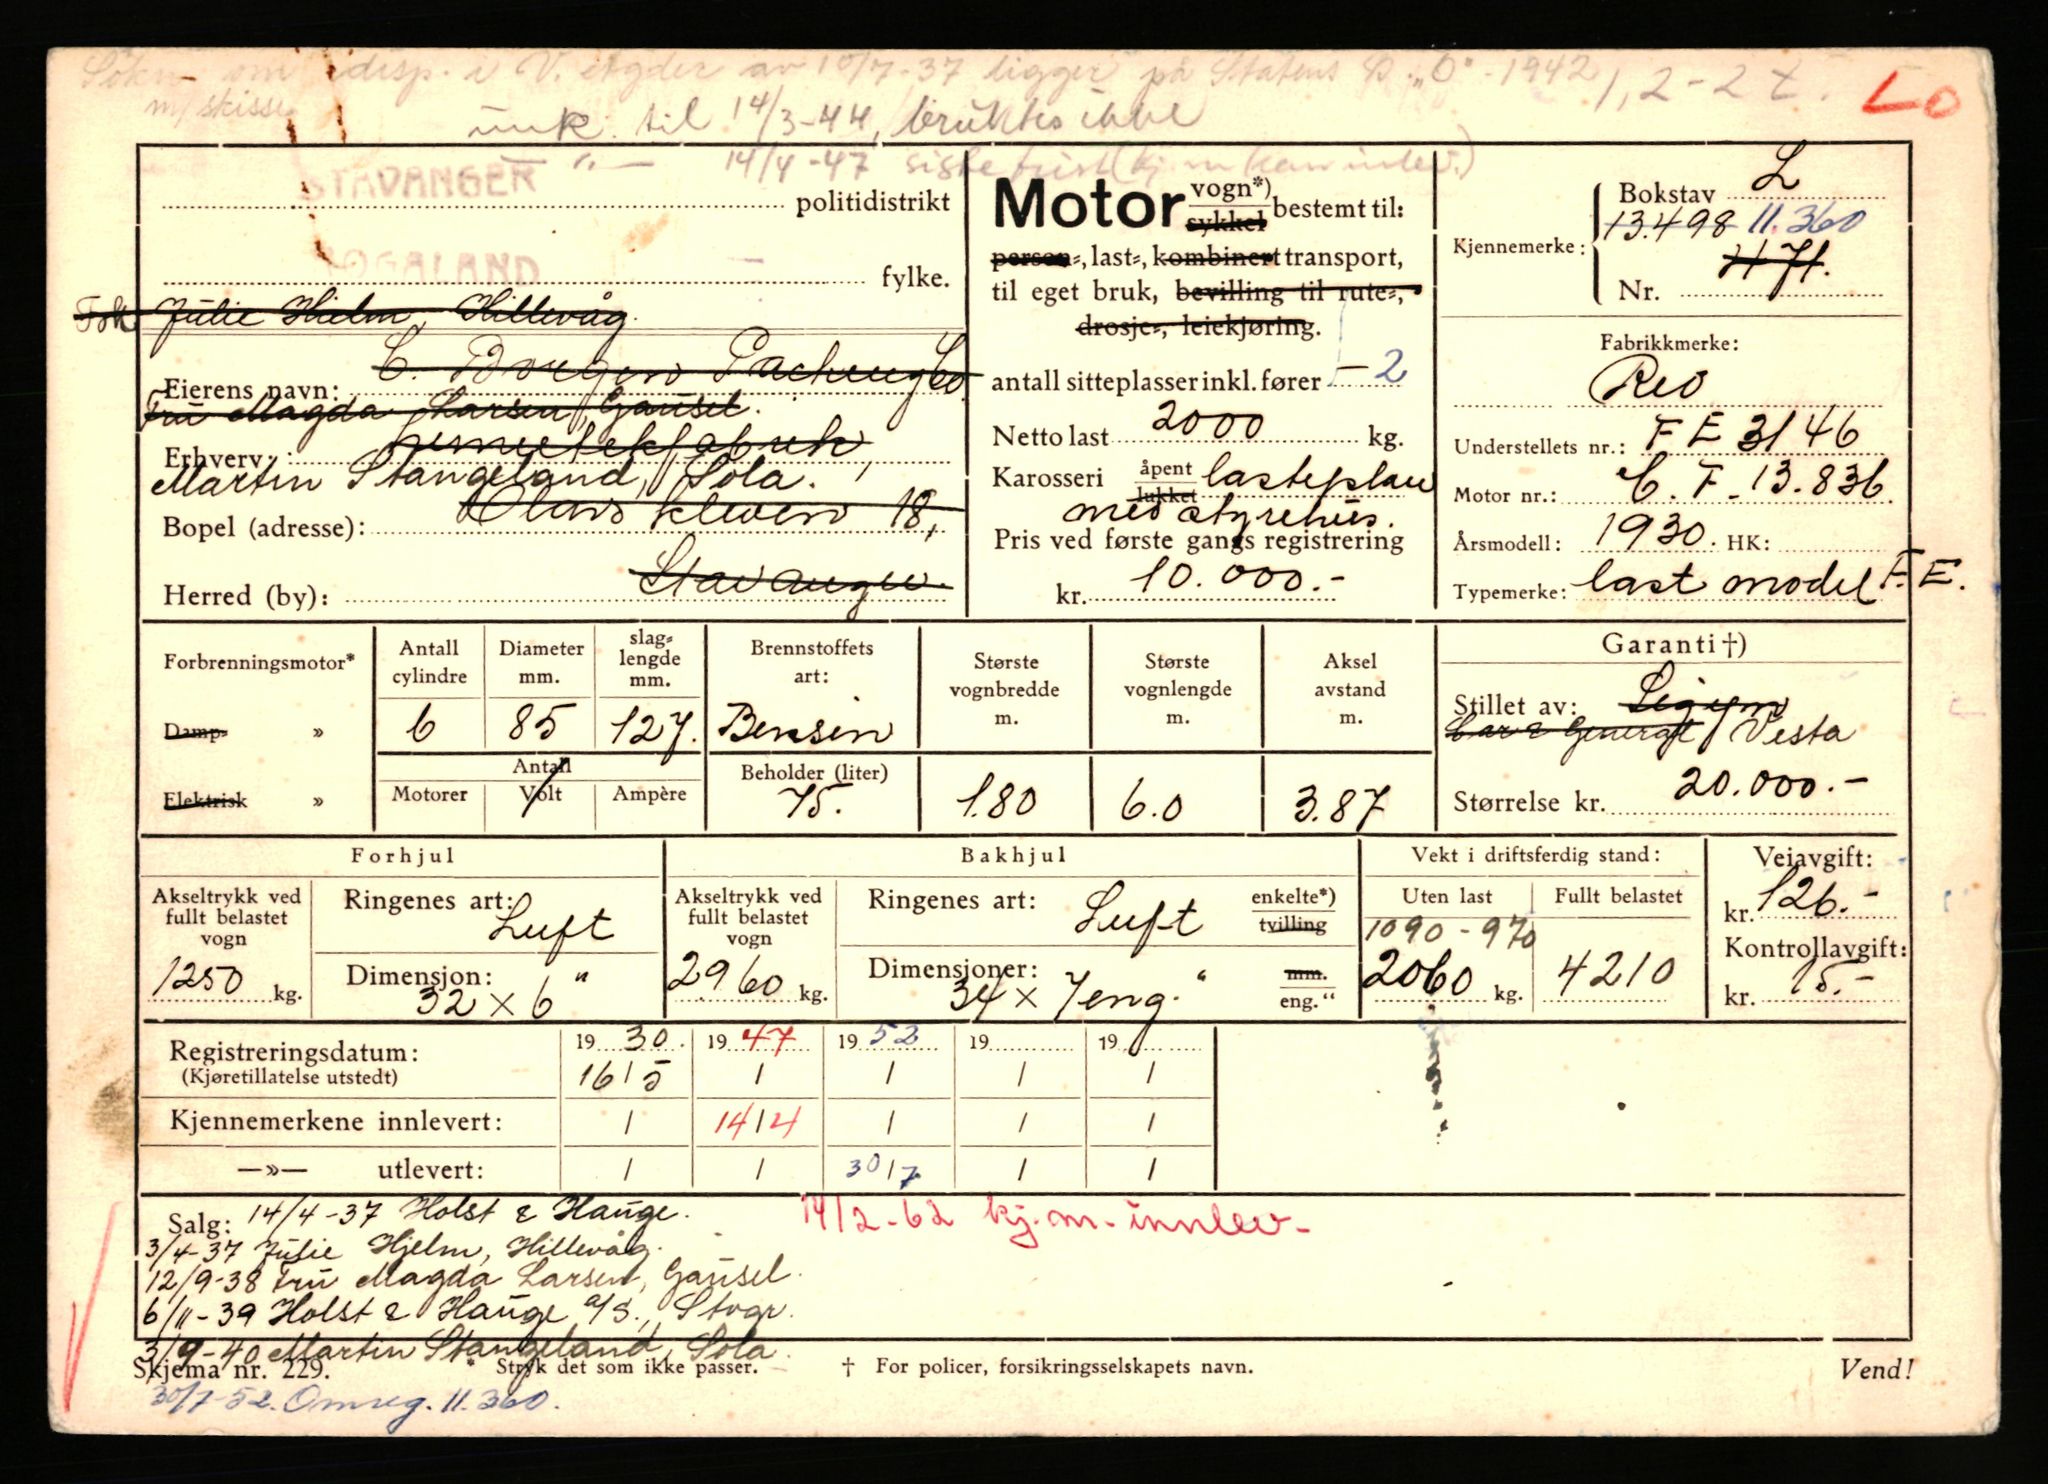 Søkn. om disp. i V. Agder av 10/7-37 ligger på Statens D. "O" - 1942 1, 2-2 t. LO
m/skisse
unk. til 14/3-44, bruktes ikke
— " — 14/4-47 siste frist (kj.m kan innlev.)
STAVANGER politidistrikt
ROGALAND fylke.
Fsk. Julie Hjelm, Hillevåg.
C. Borgen Packing Co
Eierens navn:
Fru Magda Larsen, Gausel.
hermetikkfabrik,
Erhverv:
Martin Stangeland, Sola.
Olavs kleven 18,
Bopel (adresse):
Herred (by): Stavanger.
Motor vogn*) sykkel bestemt til:
person=, last=, kombinert transport,
til eget bruk, bevilling til rute=,
drosje=, leiekjøring.
antall sitteplasser inkl. fører - 2
Netto last 2000 kg.
Karosseri åpent lukket lasteplan
med styrehus.
Pris ved første gangs registrering
kr. 10.000.-
Kjennemerke: Bokstav L
13.498 11.360
Nr. 1171.
Fabrikkmerke:
Reo
Understellets nr.: F E 3146
Motor nr.: C. F. 13.836
Årsmodell: 1930. HK:
Typemerke: last model F. E.
Forbrenningsmotor*
Damp= »
Elektrisk »
Antall cylindre 6
Diameter mm. 85
slag= lengde mm. 127.
Antall
Motorer Volt Ampère
Brennstoffets art: Bensin
Beholder (liter) 75.
Største vognbredde m. 1.80
Største vognlengde m. 6.0
Aksel avstand m. 3.87
Garanti †)
Stillet av:
Car & General Vesta
Størrelse kr. 20.000.-
Forhjul
Akseltrykk ved fullt belastet vogn
1250 kg.
Ringenes art: Luft
Dimensjon: 32 x 6 "
Bakhjul
Akseltrykk ved fullt belastet vogn
2960 kg.
Ringenes art: Luft enkelte*) tvilling
Dimensjoner: 34 x 7 eng. " mm. eng. "
Vekt i driftsferdig stand:
Uten last Fullt belastet
1090 - 970
2060 kg. 4210
Veiavgift:
kr. 126.-
Kontrollavgift:
kr. 15.-
Registreringsdatum: 19 30. 19 47 19 52 19 19
(Kjøretillatelse utstedt) 16/5 / / / /
Kjennemerkene innlevert: / 14/4 / / /
—»— utlevert: / / 30/7 / /
Salg: 14/4-37 Holst & Hauge. 14/2-62 kj.m. innlev.
3/4-37 Julie Hjelm, Hillevåg.
12/9-38 Fru Magda Larsen, Gausel.
6/11-39 Holst & Hauge a/s., Stvgr.
3/9-40 Martin Stangeland, Sola.
Skjema nr. 229. * Stryk det som ikke passer. † For policer, forsikringsselskapets navn. Vend!
30/7-52. Omreg. 11.360.